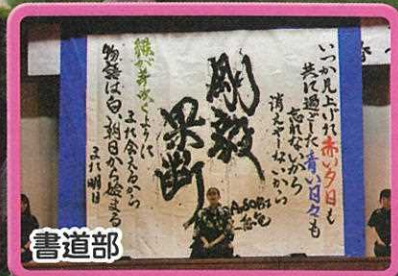 いつか見上げた赤い夕日も
共に過ごした青い日々も
忘れないから
消えやしないから
剛毅
果断
緑が芽吹くように
また会えるから
物語は白い朝日から始まる
また明日
書道部